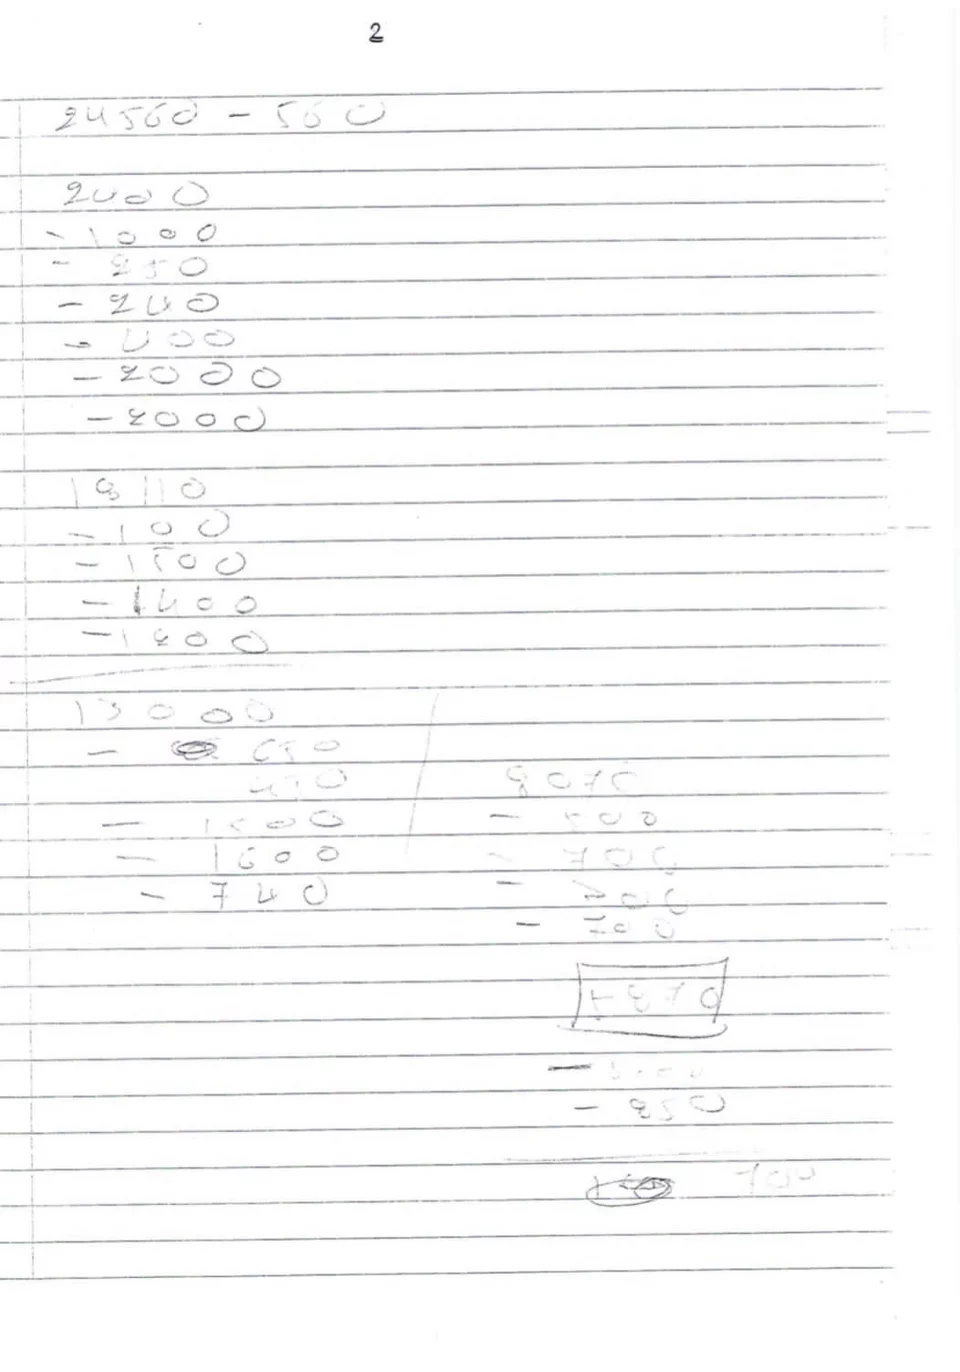 2
24560 - 560
2400
- 1000
- 250
- 240
- 400
- 2000
- 2000
18110
- 100
- 1500
- 1400
- 1200
13000
- 650
450
- 1500
- 1600
- 740
8070
- 500
- 700
- 200
- 700
5870
- 850
700